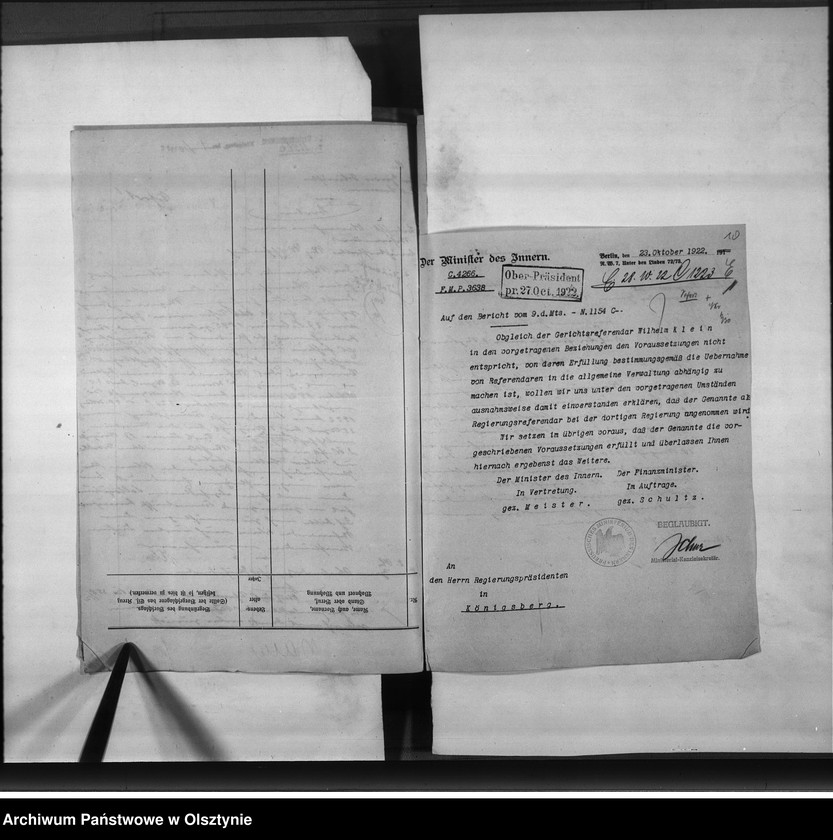 10
Der Minister des Innern.
C.4266.
F.M.P.3638
Ober-Präsident
pr. 27.Oct.1922
Berlin, den 23.Oktober 1922.
N.W.7, Unter den Linden 72/73.
Auf den Bericht vom 9.d.Mts. - N.1154 C-.
Obgleich der Gerichtsreferendar Wilhelm K l e i n
in den vorgetragenen Beziehungen den Voraussetzungen nicht
entspricht, von deren Erfüllung bestimmungsgemäß die Uebernahme
von Referendaren in die allgemeine Verwaltung abhängig zu
machen ist, wollen wir uns unter den vorgetragenen Umständen
ausnahmsweise damit einverstanden erklären, daß der Genannte als
Regierungsreferendar bei der dortigen Regierung angenommen wird.
Wir setzen im übrigen voraus, daß der Genannte die vor-
geschriebenen Voraussetzungen erfüllt und überlassen Ihnen
hiernach ergebenst das Weitere.
Der Minister des Innern. Der Finanzminister.
In Vertretung. Im Auftrage.
gez. M e i s t e r . gez. S c h u l t z .
BEGLAUBIGT.
Ministerial-Kanzleisekretär.
An
den Herrn Regierungspräsidenten
in
K ö n i g s b e r g .
Nr.
Name, auch Vorname,
Stand oder Beruf,
Wohnort und Wohnung
Lebens-
alter
Jahre
Begründung des Vorschlags
Archiwum Państwowe w Olsztynie